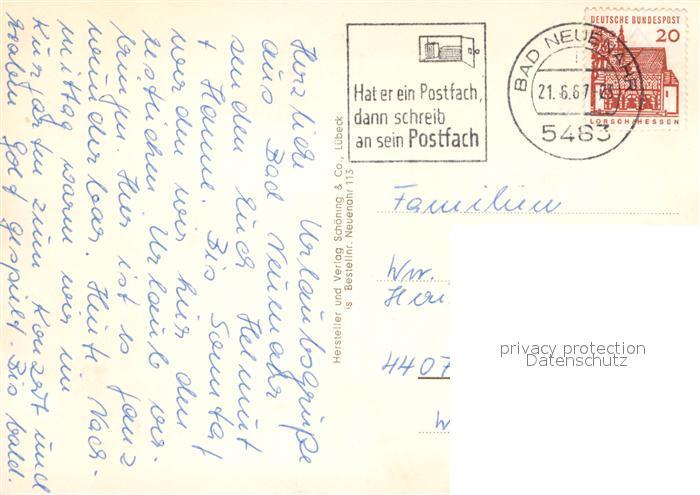 Herzliche Urlaubsgrüße
aus Bad Neuenahr
senden Euch Helmut
+ Hanne. Bis Sonntag
werden wir hier den
restlichen Urlaub ver-
bringen. Hier ist es ganz
wunderbar. Heute Nach-
mittag waren wir im
Kurgarten zum Konzert und
haben Golf gespielt. Bis bald.
Hersteller und Verlag Schöning & Co., Lübeck
Bestellnr. Neuenahr 113
Hat er ein Postfach,
dann schreib
an sein Postfach
BAD NEUENAHR
21.6.67
5483
DEUTSCHE BUNDESPOST
20
LORSCH/HESSEN
Familien
Ww.
4407
privacy protection
Datenschutz